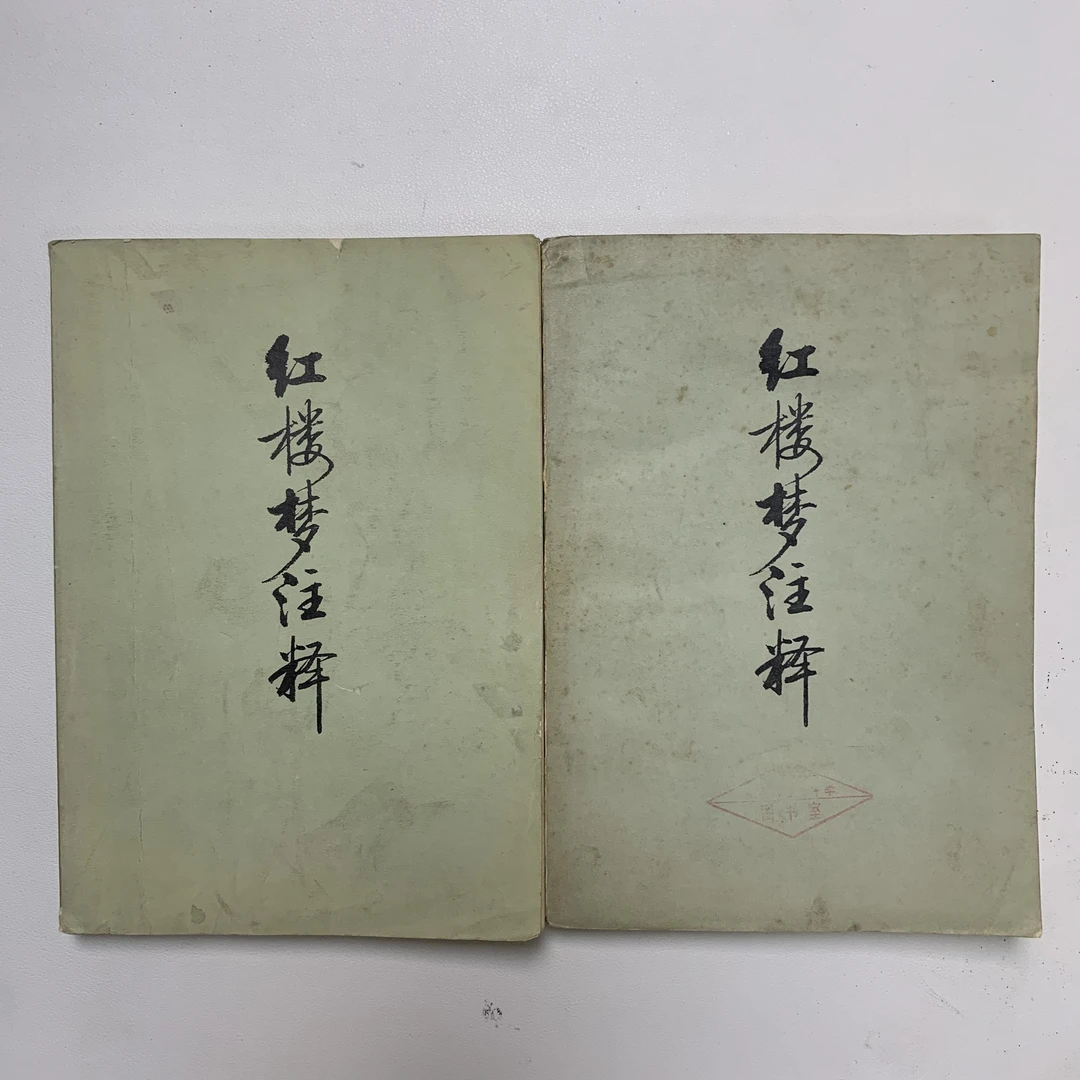 红楼梦注释
红楼梦注释
图书室